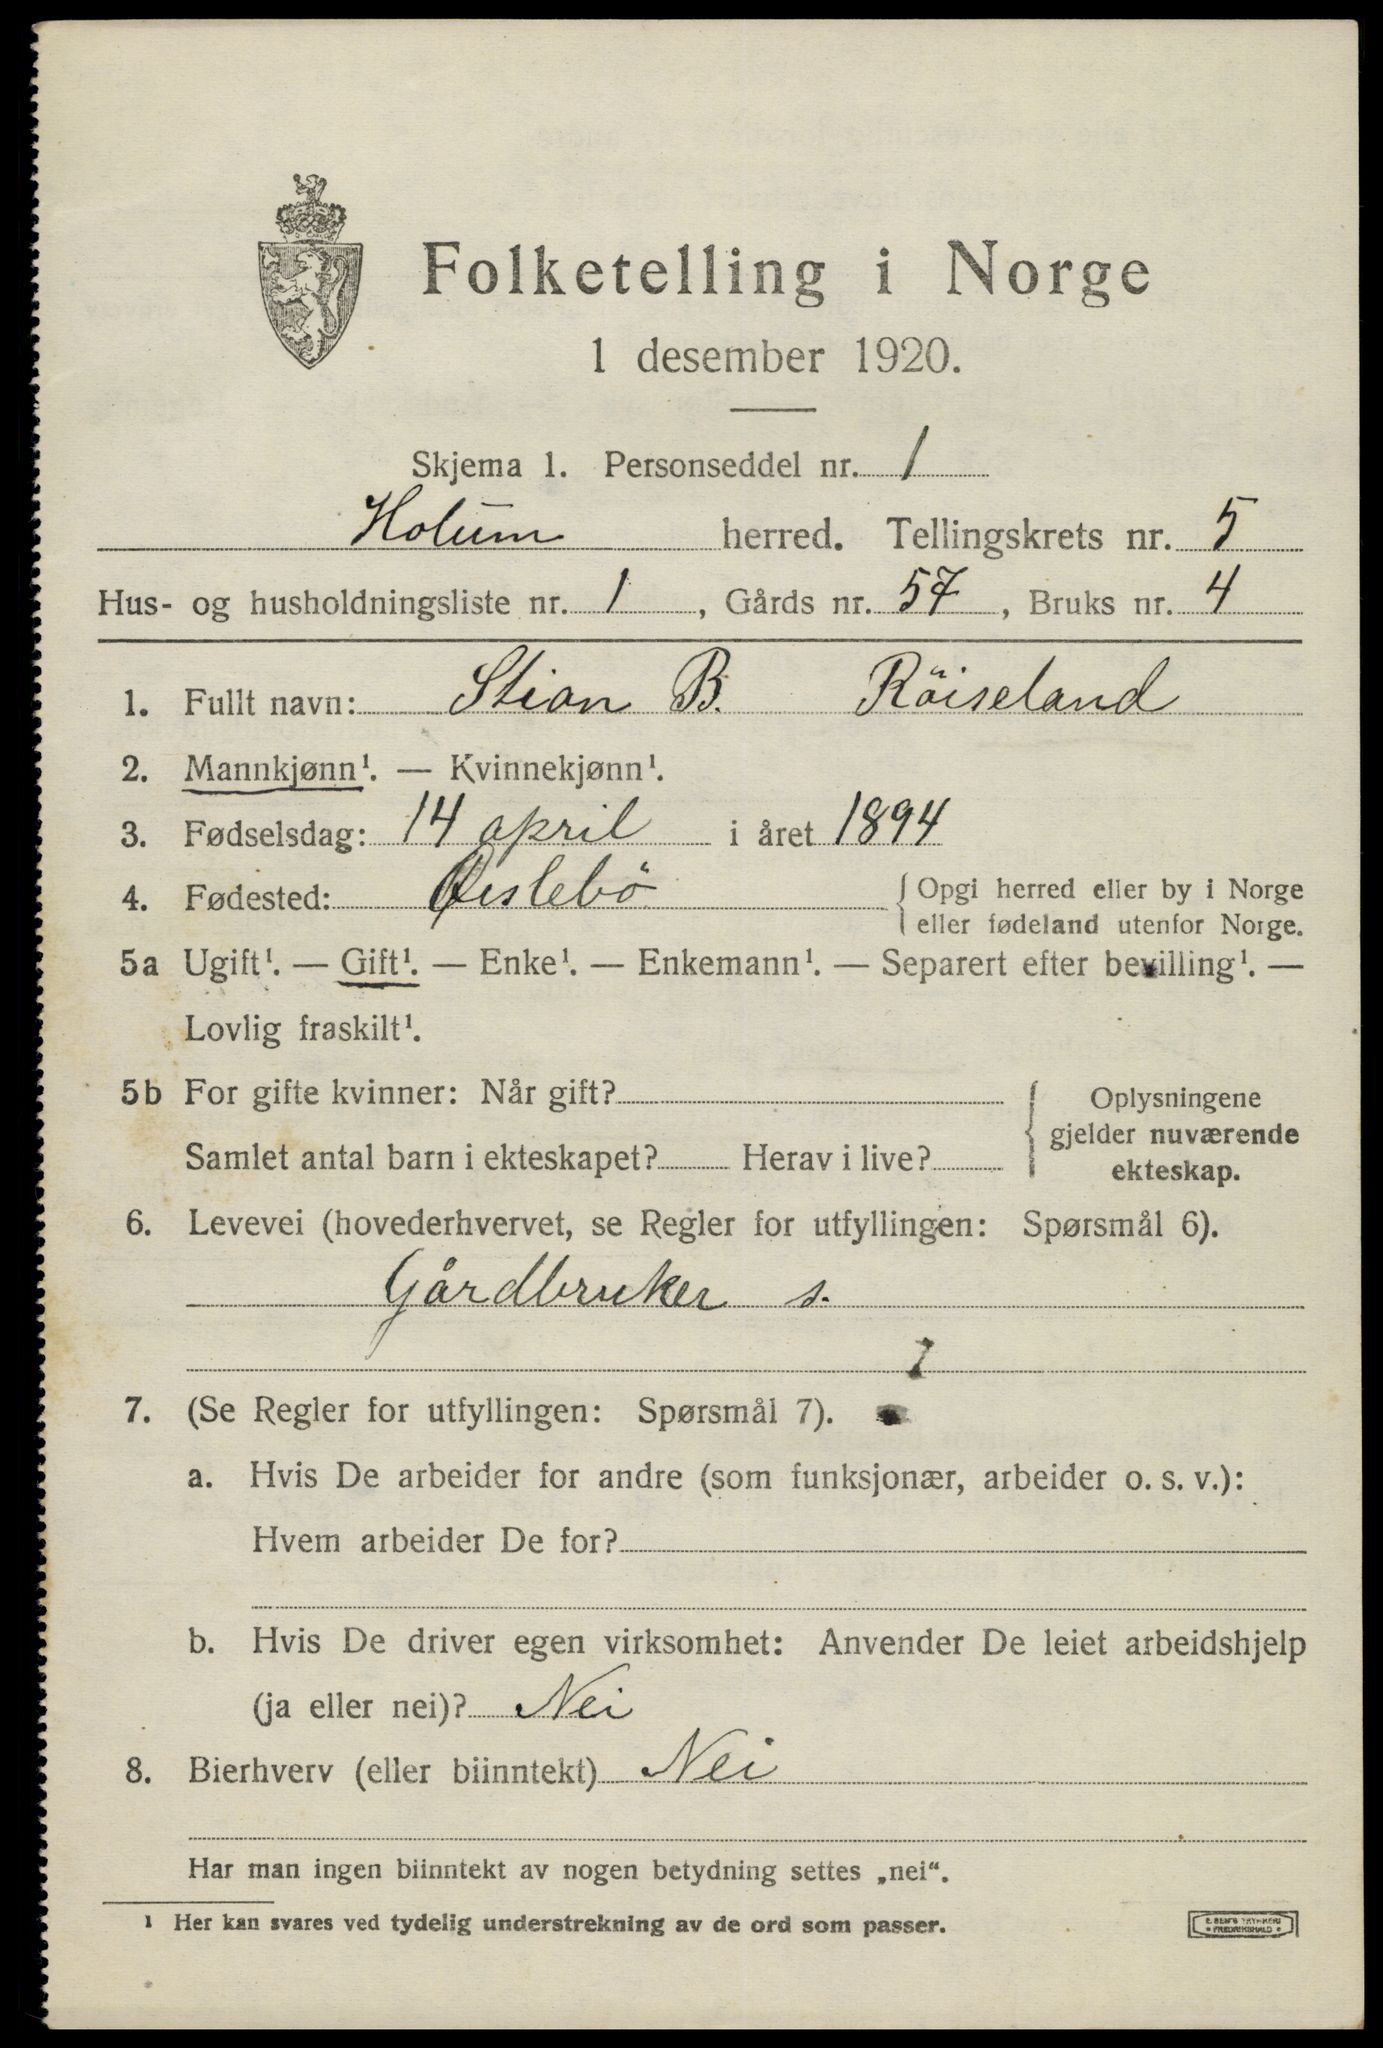 Folketelling i Norge
1 desember 1920.
Skjema 1. Personseddel nr. 1
Holum herred. Tellingskrets nr. 5
Hus- og husholdningsliste nr. 1, Gårds nr. 57, Bruks nr. 4
1. Fullt navn: Stian B. Röiseland
2. Mannkjønn¹. — Kvinnekjønn¹.
3. Fødselsdag: 14 april i året 1894
4. Fødested: Øislebö
Opgi herred eller by i Norge
eller fødeland utenfor Norge.
5a Ugift¹. — Gift¹. — Enke¹. — Enkemann¹. — Separert efter bevilling¹. —
Lovlig fraskilt¹.
5b For gifte kvinner: Når gift?
Samlet antal barn i ekteskapet? Herav i live?
Oplysningene
gjelder nuværende
ekteskap.
6. Levevei (hovederhvervet, se Regler for utfyllingen: Spørsmål 6).
Gårdbruker s.
7. (Se Regler for utfyllingen: Spørsmål 7).
a. Hvis De arbeider for andre (som funksjonær, arbeider o. s. v.):
Hvem arbeider De for?
b. Hvis De driver egen virksomhet: Anvender De leiet arbeidshjelp
(ja eller nei)? Nei
8. Bierhverv (eller biinntekt) Nei
Har man ingen biinntekt av nogen betydning settes „nei“.
¹ Her kan svares ved tydelig understrekning av de ord som passer.